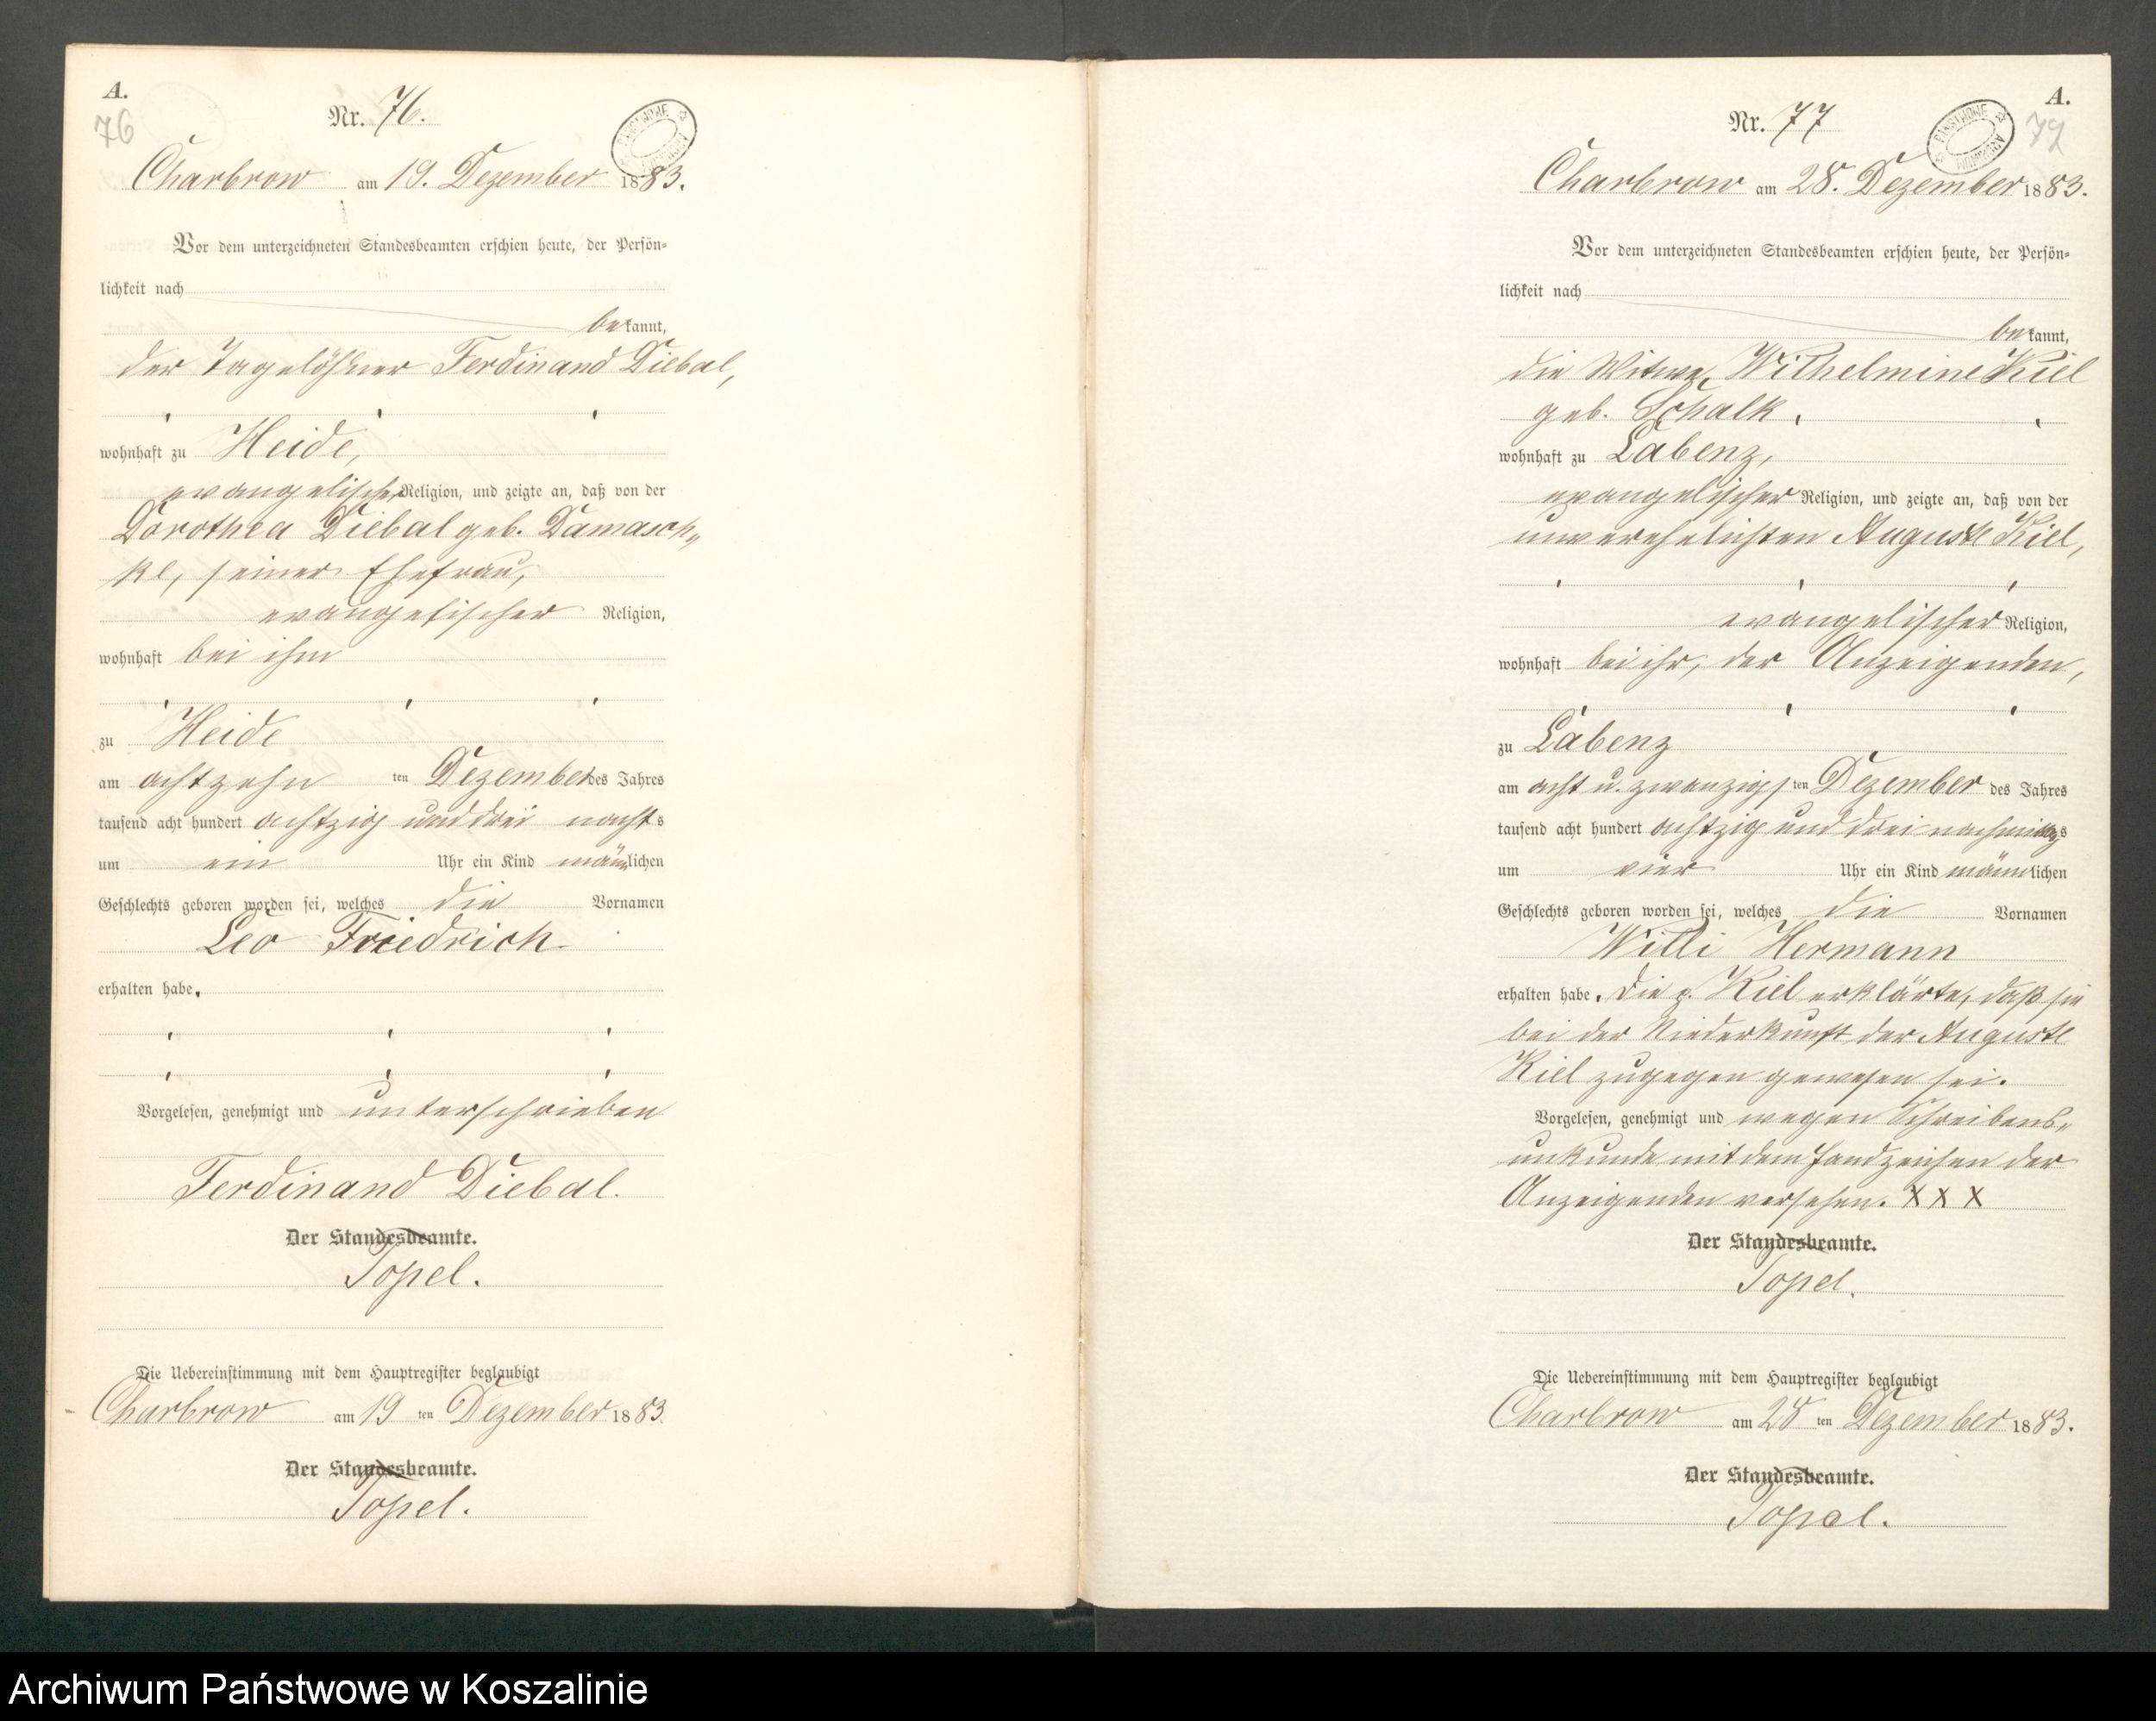 A.
76
Nr. 76.
Charbrow am 19. Dezember 1883.
Vor dem unterzeichneten Standesbeamten erschien heute, der Persön=
lichkeit nach
bekannt,
der Tagelöhner Ferdinand Diebal,
wohnhaft zu Heide,
evangelischer Religion, und zeigte an, daß von der
Dorothea Diebal geb. Damasch„
ke, seiner Ehefrau,
evangelischer Religion,
wohnhaft bei ihm
zu Heide
am achtzehn ten Dezember des Jahres
tausend acht hundert achtzig und drei nachts
um ein Uhr ein Kind männlichen
Geschlechts geboren worden sei, welches die Vornamen
Leo Friedrich
erhalten habe.
Vorgelesen, genehmigt und unterschrieben
Ferdinand Diebal.
Der Standesbeamte.
Topel.
Die Uebereinstimmung mit dem Hauptregister beglaubigt
Charbrow am 19 ten Dezember 1883.
Der Standesbeamte.
Topel.
A.
Nr. 77
Charbrow am 28. Dezember 1883.
Vor dem unterzeichneten Standesbeamten erschien heute, der Persön=
lichkeit nach
bekannt,
die Witwe, Wilhelmine Kiel
geb. Schalk,
wohnhaft zu Labenz,
evangelischer Religion, und zeigte an, daß von der
unverehelichten Auguste Kiel,
evangelischer Religion,
wohnhaft bei ihr, der Anzeigenden,
zu Labenz
am acht u. zwanzigs ten Dezember des Jahres
tausend acht hundert achtzig und drei nachmittags
um vier Uhr ein Kind männlichen
Geschlechts geboren worden sei, welches die Vornamen
Willi Hermann
erhalten habe. Die p. Kiel erklärte, daß sie
bei der Niederkunft der Auguste
Kiel zugegen gewesen sei.
Vorgelesen, genehmigt und wegen Schreibens„
unkunde mit dem Handzeichen der
Anzeigenden versehen. X X X
Der Standesbeamte.
Topel.
Die Uebereinstimmung mit dem Hauptregister beglaubigt
Charbrow am 28 ten Dezember 1883.
Der Standesbeamte.
Topel.
Archiwum Państwowe w Koszalinie